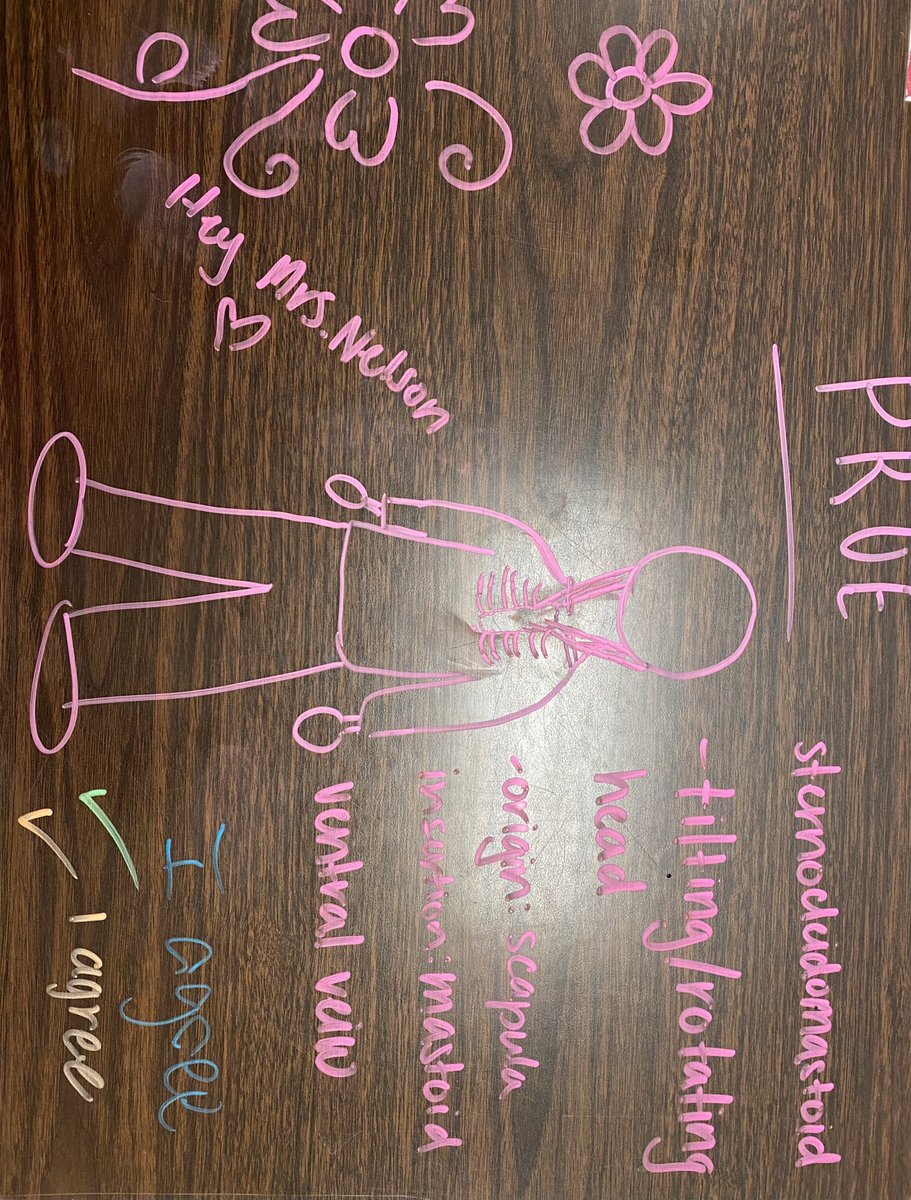 PRUE
sternocleidomastoid
-tilting/rotating
head
-origin: scapula
insertion: mastoid
ventral veiw
Hey Mrs. Nelson
I agree
I agree